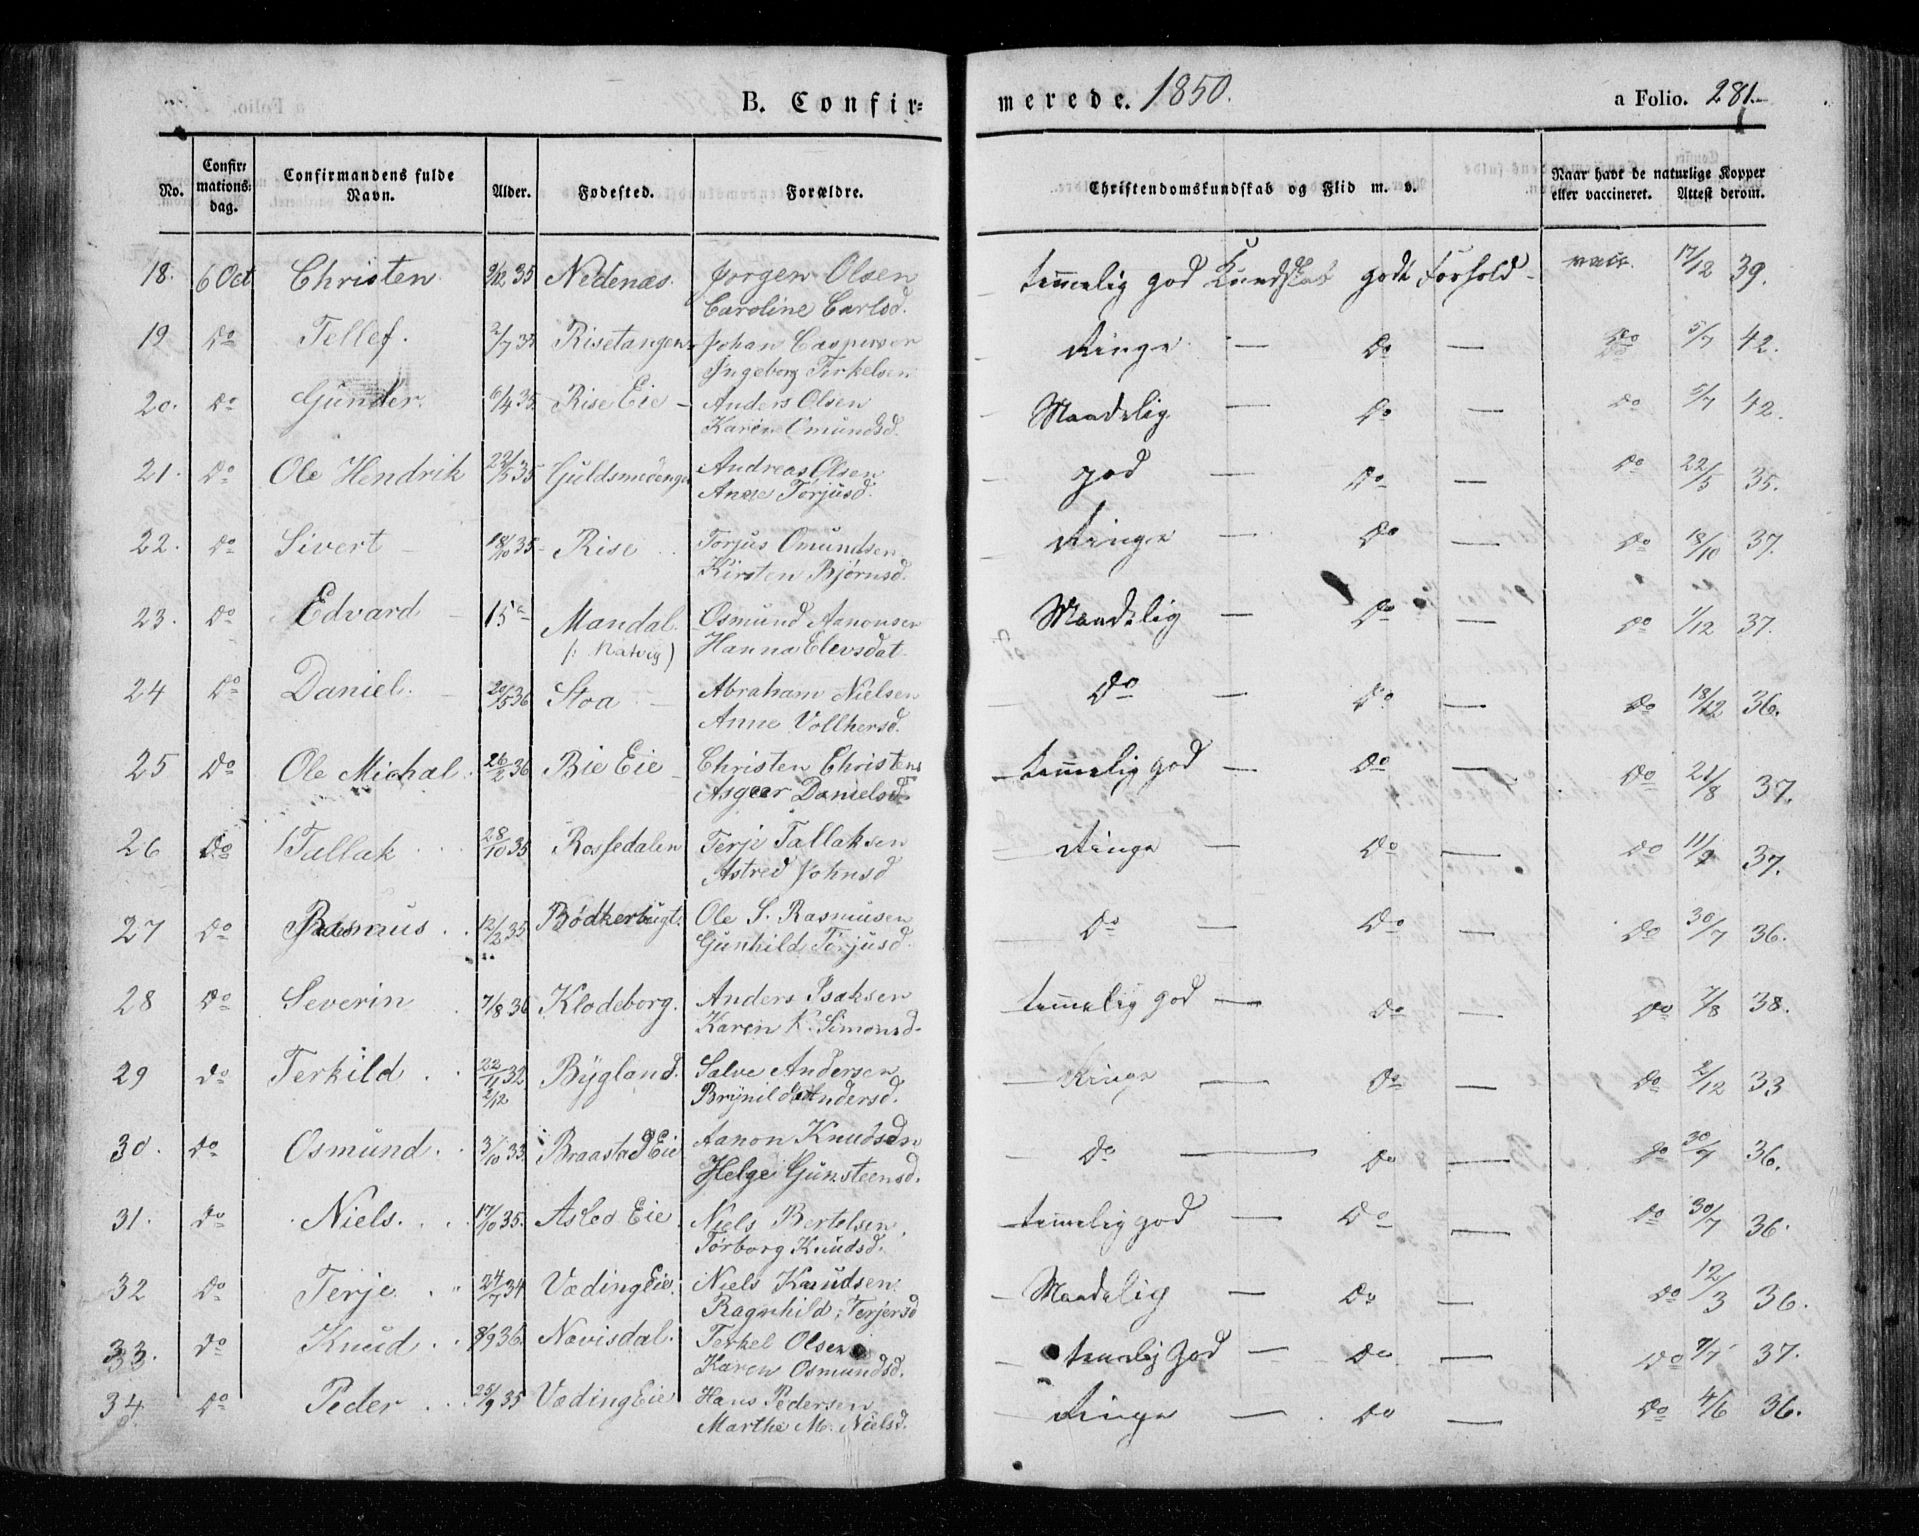 B. Confirmerede. 1850. a Folio. 281.
No. Confirmations: dag. Confirmandens fulde Navn. Alder. Fødested. Forældre. Christendomskundskab og Flid m. v. Naar havt de naturlige Kopper eller vaccineret. Attest derom.
18. 6 Oct Christen 9/12 35 Nedenæs. Jørgen Olsen temmelig god Kundskab godt Forhold - vacc. 17/12 39.
Caroline Carlsd.
19 Do Tellef. 2/7 35 Risetangen Johan Caspersen Ringe — Do — Do 5/7 42.
Ingeborg Terkelsen
20. Do Gunder. 6/4 35. Rise Eie - Anders Olsen Maadelig — Do — Do 5/7 42.
Karen Omundsd.
21. Do Ole Hendrik 22/3 35 Guldsmedengen Andreas Olsen god — Do — Do 22/5 35.
Anne Torjusd.
22. Do Sivert - 18/10 35 - Rise Torjus Omundsen Ringe — Do — Do 18/10 37.
Kirsten Bjørnsd.
23. Do Edvard - 15 Mandal. Osmund Aanonsen Maadelig — Do — Do 1/12 37.
Hanna Elevsdat.
24 Do Daniel. - 20/5 36 Stoa - Abraham Nielsen Do — Do — Do 18/12 36.
Anne Vollhersd.
25 Do Ole Michal. 26/2 36 Bie Eie - Christen Christens temmelig god — Do — Do 21/8 37.
Asgeer Danielsd.
26 Do Tallak 28/10 35 Rossedalen Terje Tallaksen Ringe — Do — Do 37.
Astred Johnsd
27 Do Rasmus 12/2 35 Bødkerbugt. Ole S. Rasmusen Do — Do — Do 30/7 36.
Gunhild Terjusd.
28 Do Severin 7/8 36 Klodeborg. Anders Isaksen temmelig god — Do — Do 7/8 38.
Karen K. Simonsd.
29 Do Terkild 22/11 32 Bygland. Salve Andersen Ringe — Do — Do 2/12 33
2/12 Brynild Andersd.
30. Do Osmund. 3/10 33. Braastad Eie Aanon Knudsen Do — Do — Do 30/7 36.
Helge Gunsteensd.
31. Do Niels. 17/10 35. Asled Eie Niels Bertelsen temmelig god — Do — Do 30/7 36.
Torborg Knudsd.
32 Do Terje 24/7 34 Væding Eie. Niels Knudsen Maadelig — Do — Do 12/3 36.
Ragnhild Terjersd
33. Do Knud 8/9 36. Navisdal. Terkel Olsen temmelig god — Do — Do 37.
Karen Osmundsd.
34. Do Peder 25/9 35 Væding Eie Hans Pedersen Ringe — Do — Do 4/6 36.
Marthe M. Nielsd.